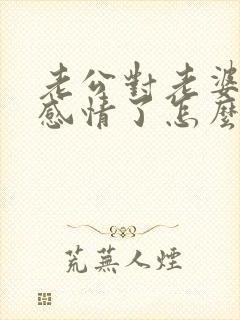 老公對老婆
感情了怎麼
荒蕪人煙